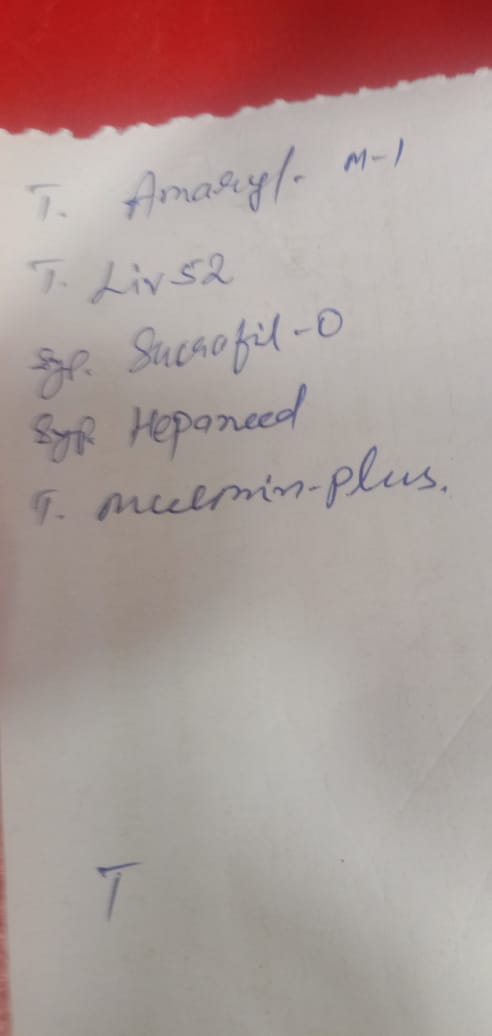 T. Amaryl. M-1
T. Liv 52
Syp. Sucrafil-O
Syp Hepaneed
T. mulmin-plus.
T